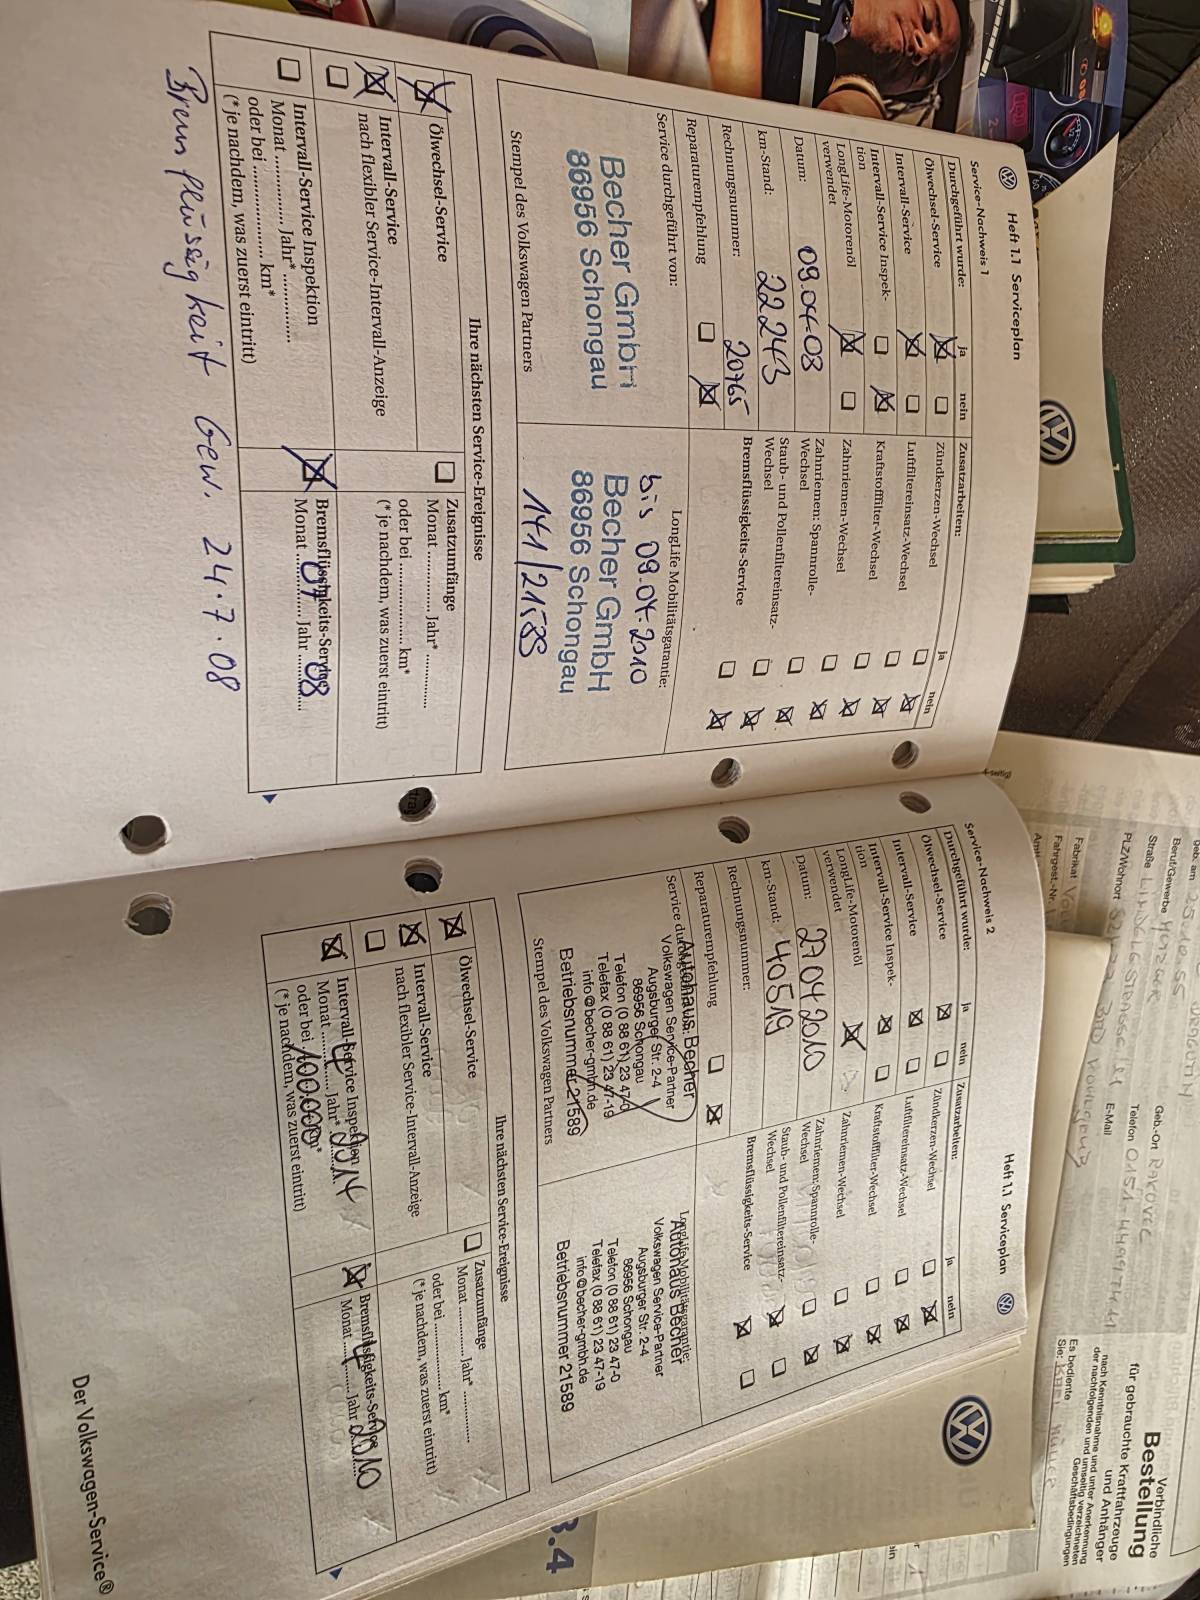 Heft 1.1 Serviceplan
Service-Nachweis 1
Durchgeführt wurde:
ja
nein
Ölwechsel-Service
Intervall-Service
Intervall-Service Inspek-
tion
LongLife-Motorenöl
verwendet
Datum:
09.04.08
km-Stand:
22243
Rechnungsnummer:
20765
Reparaturempfehlung
Service durchgeführt von:
Becher GmbH
86956 Schongau
Stempel des Volkswagen Partners
Zusatzarbeiten:
ja
nein
Zündkerzen-Wechsel
Luftfiltereinsatz-Wechsel
Kraftstofffilter-Wechsel
Zahnriemen-Wechsel
Zahnriemen: Spannrolle-
Wechsel
Staub- und Pollenfiltereinsatz-
Wechsel
Bremsflüssigkeits-Service
LongLife Mobilitätsgarantie:
bis 09.04.2010
Becher GmbH
86956 Schongau
141/21589
Ihre nächsten Service-Ereignisse
Ölwechsel-Service
Intervall-Service
nach flexibler Service-Intervall-Anzeige
Intervall-Service Inspektion
Monat ............... Jahr* ...............
oder bei ............... km*
(* je nachdem, was zuerst eintritt)
Zusatzumfänge
Monat ............... Jahr* ...............
oder bei ............... km*
(* je nachdem, was zuerst eintritt)
Bremsflüssigkeits-Service
Monat 07 Jahr 08
Bremsflüssigkeit Gew. 24.7.08
Heft 1.1 Serviceplan
Service-Nachweis 2
Durchgeführt wurde:
ja
nein
Ölwechsel-Service
Intervall-Service
Intervall-Service Inspek-
tion
LongLife-Motorenöl
verwendet
Datum:
27042010
km-Stand:
40519
Rechnungsnummer:
Reparaturempfehlung
Service durchgeführt von:
Autohaus Becher
Volkswagen Service-Partner
Augsburger Str. 2-4
86956 Schongau
Telefon (0 88 61) 23 47-0
Telefax (0 88 61) 23 47-19
info@becher-gmbh.de
Betriebsnummer 21589
Stempel des Volkswagen Partners
Zusatzarbeiten:
ja
nein
Zündkerzen-Wechsel
Luftfiltereinsatz-Wechsel
Kraftstofffilter-Wechsel
Zahnriemen-Wechsel
Zahnriemen: Spannrolle-
Wechsel
Staub- und Pollenfiltereinsatz-
Wechsel
Bremsflüssigkeits-Service
LongLife Mobilitätsgarantie:
Autohaus Becher
Volkswagen Service-Partner
Augsburger Str. 2-4
86956 Schongau
Telefon (0 88 61) 23 47-0
Telefax (0 88 61) 23 47-19
info@becher-gmbh.de
Betriebsnummer 21589
Ihre nächsten Service-Ereignisse
Ölwechsel-Service
Intervall-Service
nach flexibler Service-Intervall-Anzeige
Intervall-Service Inspektion
Monat 4 Jahr* 2014
oder bei 100.000 km*
(* je nachdem, was zuerst eintritt)
Zusatzumfänge
Monat ............... Jahr* ...............
oder bei ............... km*
(* je nachdem, was zuerst eintritt)
Bremsflüssigkeits-Service
Monat 4 Jahr 2010
Der Volkswagen-Service®
3.4
Verbindliche
Bestellung
für gebrauchte Kraftfahrzeuge
und Anhänger
nach Kenntnisnahme und unter Anerkennung
der nachfolgenden und umseitig verzeichneten
Geschäftsbedingungen
Es bediente
Sie:
geb. am
Geb.-Ort
Beruf/Gewerbe
Straße
Telefon
PLZ/Wohnort
E-Mail
Fabrikat
Fahrgest.-Nr.